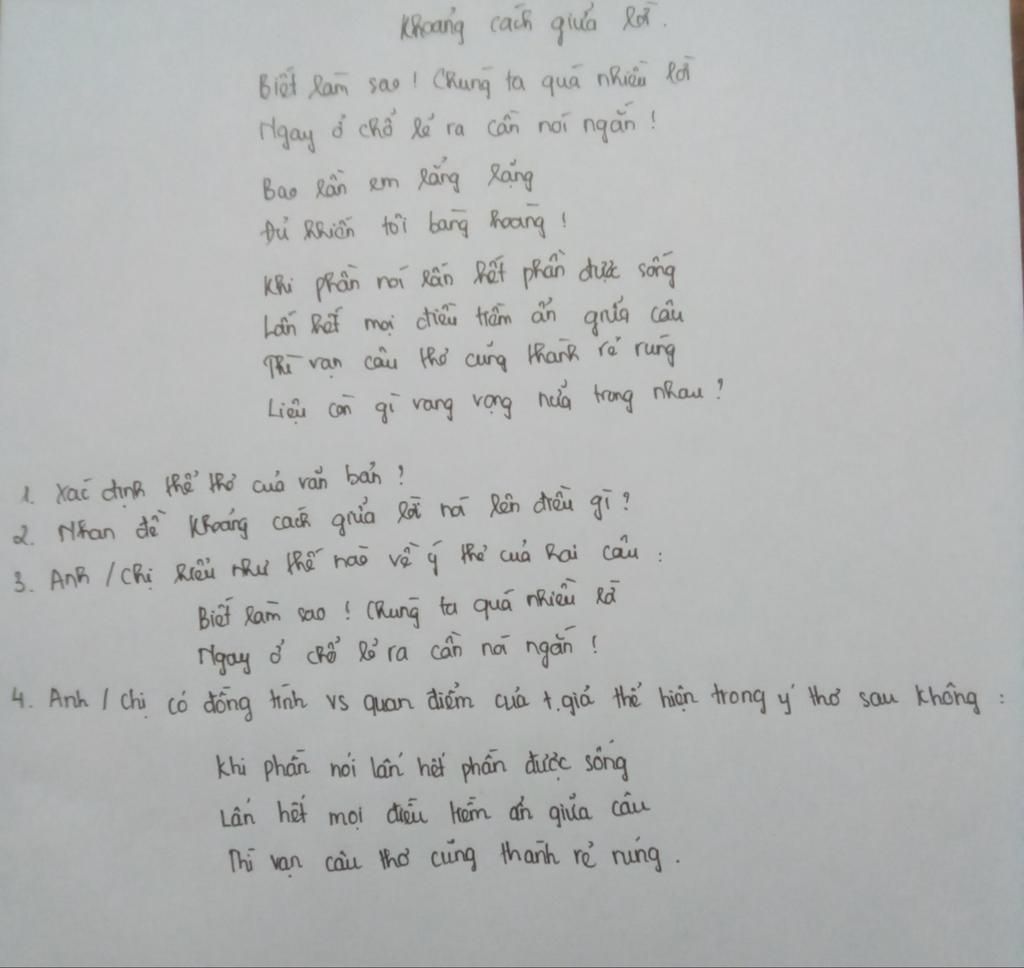 Khoảng cách giữa lời.
Biết làm sao! Chúng ta quá nhiều lời
Ngay ở chỗ lẽ ra cần nói ngắn!
Bao lần em lẳng lặng
Đủ khiến tôi bàng hoàng!
Khi phần nói lấn hết phần được sống
Lấn hết mọi điều trầm ẩn giữa câu
Thì vạn câu thơ cũng thành rẻ rúng
Liệu còn gì vang vọng nữa trong nhau?
1. Xác định thể thơ của văn bản?
2. Nhan đề Khoảng cách giữa lời nói lên điều gì?
3. Anh / Chị hiểu như thế nào về ý thơ của hai câu:
Biết làm sao! Chúng ta quá nhiều lời
Ngay ở chỗ lẽ ra cần nói ngắn!
4. Anh / Chị có đồng tình vs quan điểm của t.giả thể hiện trong ý thơ sau không:
Khi phần nói lấn hết phần được sống
Lấn hết mọi điều tiềm ẩn giữa câu
Thì vạn câu thơ cũng thành rẻ rúng.